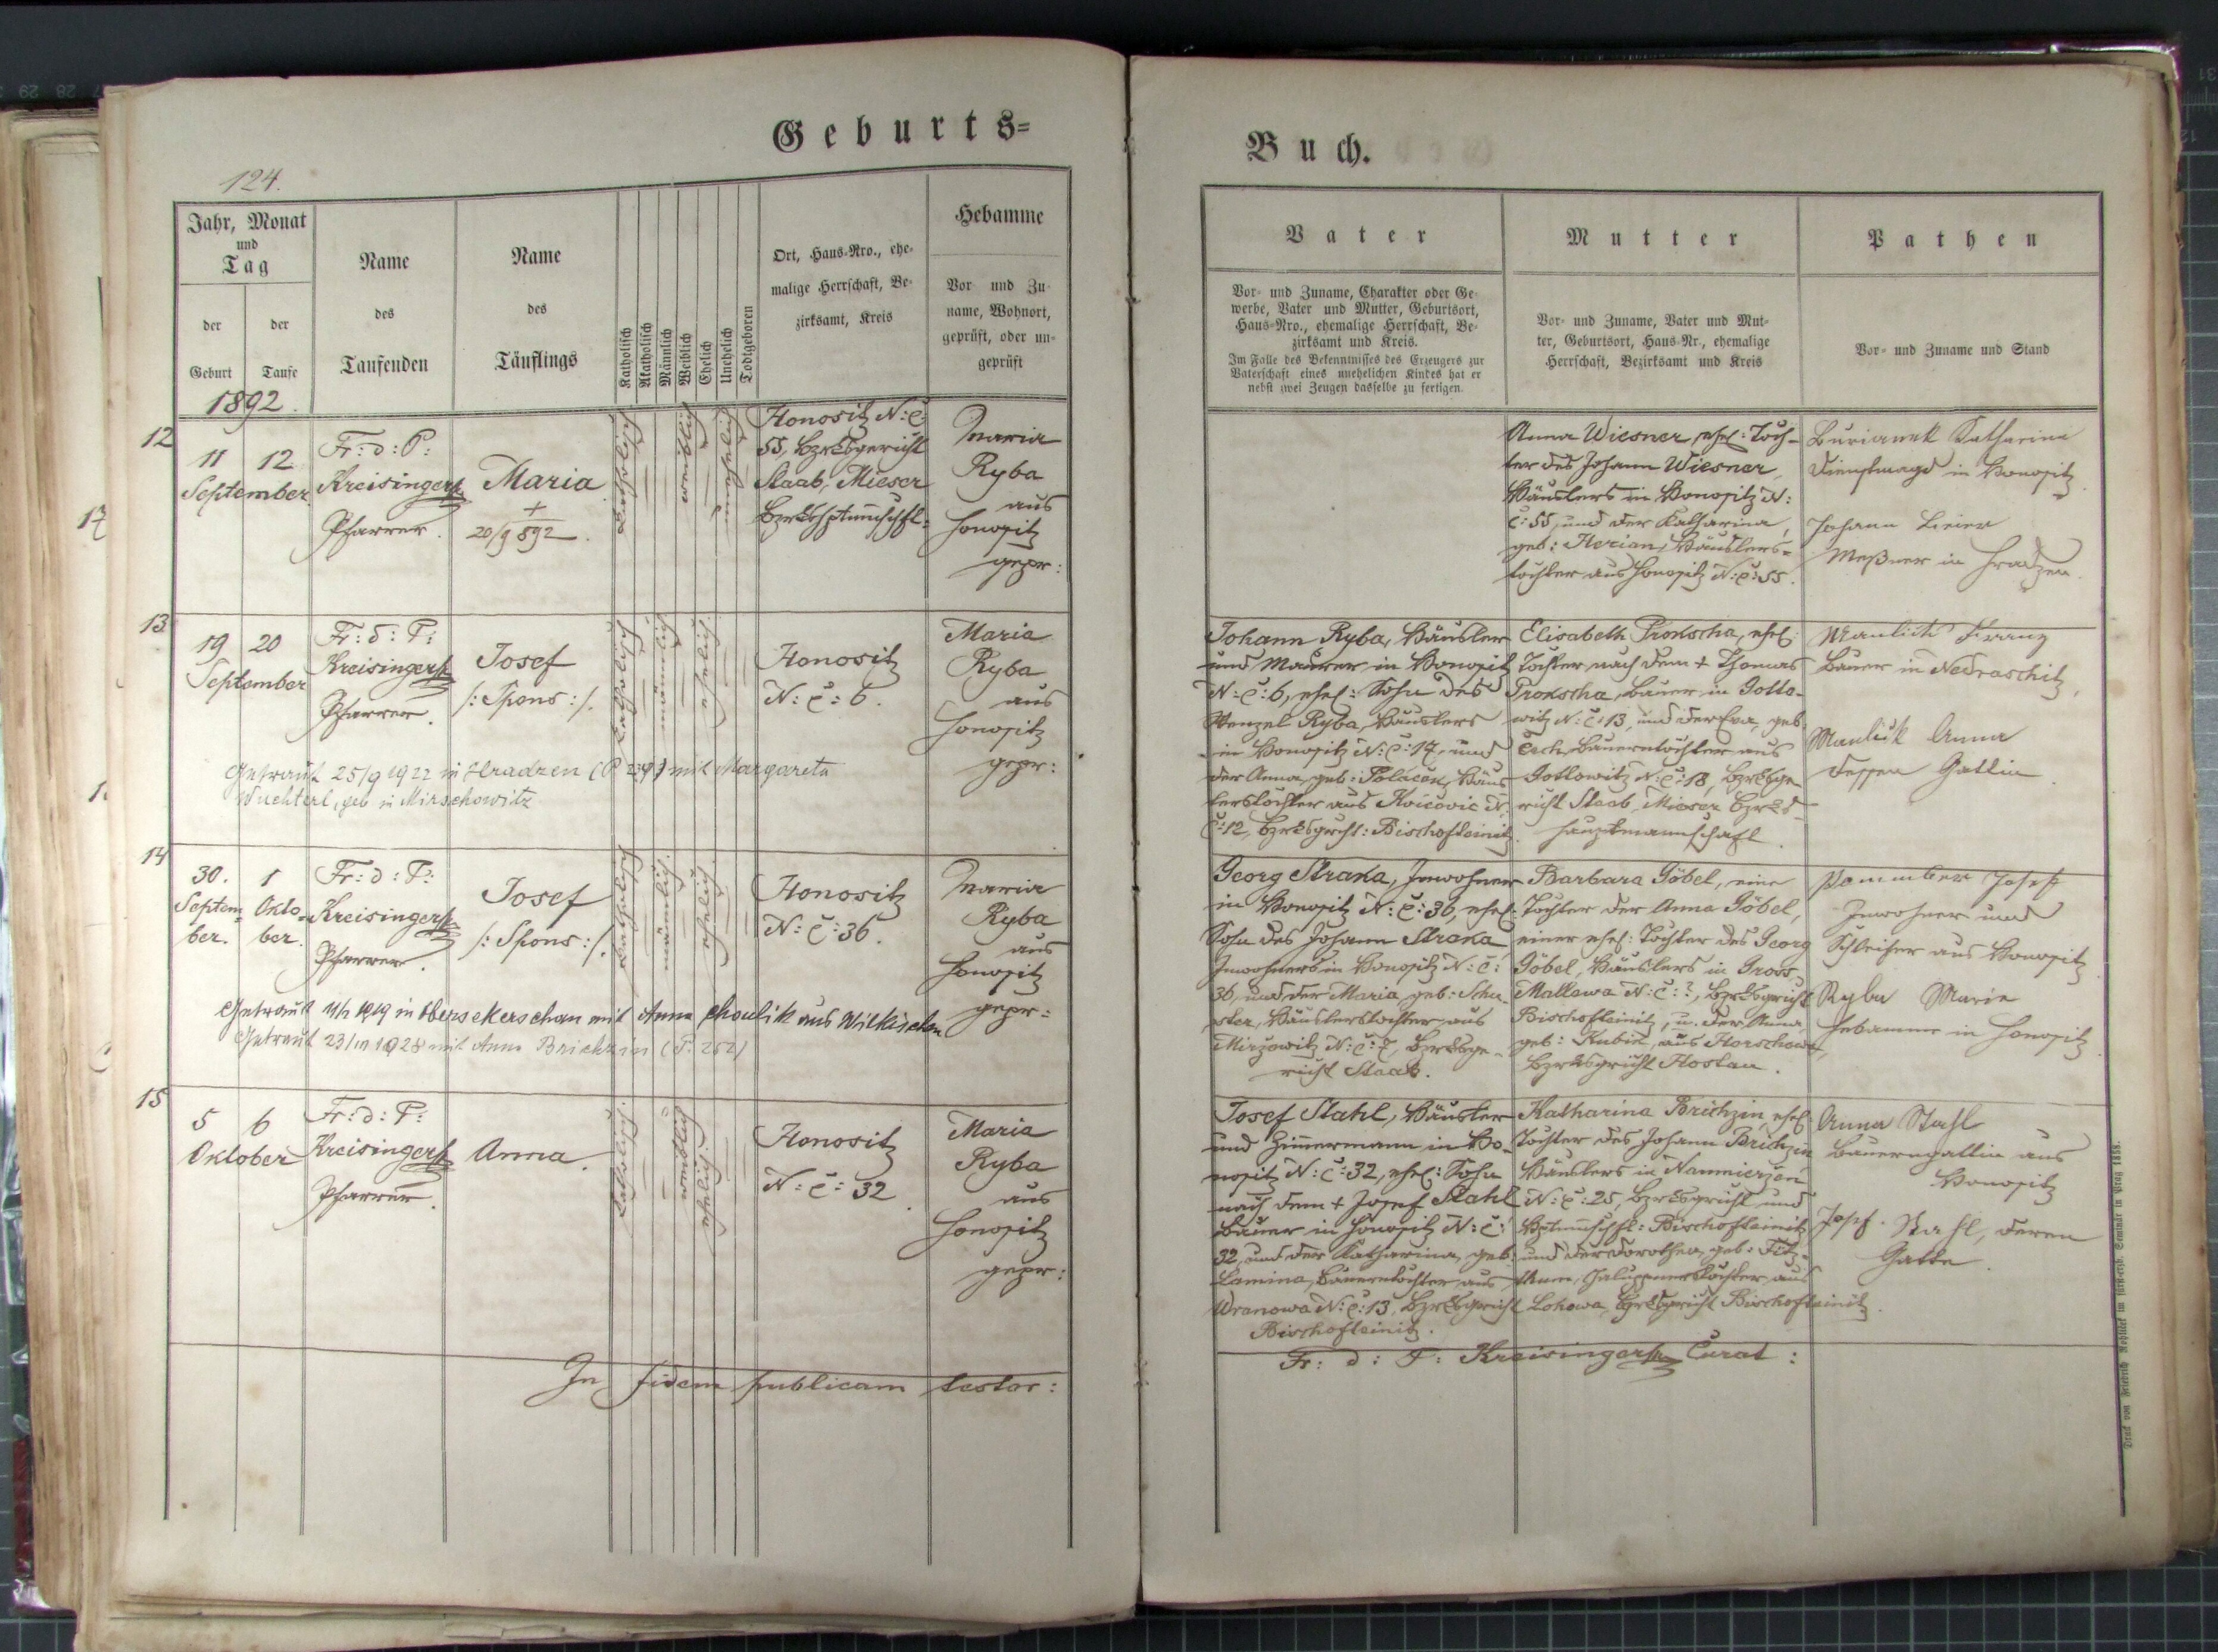 Geburts=
124.
Jahr, Monat
und
Tag
der
Geburt
der
Taufe
Name
des
Taufenden
Name
des
Täuflings
Katholisch
Akatholisch
Männlich
Weiblich
Ehelich
Unehelich
Todtgeboren
Ort, Haus-Nro., ehe-
malige Herrschaft, Be-
zirksamt, Kreis
Hebamme
Vor- und Zu-
name, Wohnort,
geprüft, oder un-
geprüft
1892.
12
11 12
September
Fr: d: P:
Kreisinger
Pfarrer.
Maria
+
20/9 892.
katholisch
weiblich
unehelich
Honositz N: č:
55, Bzrksgericht
Staab, Mieser
Bzrkshptmschft.
Maria
Ryba
aus
Honositz
gepr:
13
19 20
September
Fr: d: P:
Kreisinger
Pfarrer.
Josef
/: Spons: /.
katholisch
männlich
ehelich
Honositz
N: č: 6.
Maria
Ryba
aus
Honositz
gepr:
Getraut 25/9 1922 in Hradzen mit Margareta
Wuchterl, geb in Mirschowitz
14
30. 1
Septem- Okto-
ber. ber.
Fr: d: P:
Kreisinger
Pfarrer.
Josef
/: Spons: /.
katholisch
männlich
ehelich
Honositz
N: č: 36.
Maria
Ryba
aus
Honositz
gepr:
Getraut 1919 in Obersekerschan mit Anna aus Wilkischen
Getraut 23/ 1928 mit Anna Brichzin (P. 252)
15
5 6
Oktober
Fr: d: P:
Kreisinger
Pfarrer.
Anna.
katholisch
weiblich
ehelich
Honositz
N: č: 32.
Maria
Ryba
aus
Honositz
gepr:
In fidem publicam testor:
Buch.
Vater
Vor- und Zuname, Charakter oder Ge-
werbe, Vater und Mutter, Geburtsort,
Haus-Nro., ehemalige Herrschaft, Be-
zirksamt und Kreis.
Im Falle des Bekenntnisses des Erzeugers zur
Vaterschaft eines unehelichen Kindes hat er
nebst zwei Zeugen dasselbe zu fertigen.
Mutter
Vor- und Zuname, Vater und Mut-
ter, Geburtsort, Haus-Nr., ehemalige
Herrschaft, Bezirksamt und Kreis
Pathen
Vor- und Zuname und Stand
Anna Wiesner, ehel: Toch-
ter des Johann Wiesner,
Häuslers in Honositz N:
č: 55, und der Katharina,
geb: Herian, Häuslers-
tochter aus Honositz N: č: 55.
Burianek Katharina
Dienstmagd in Honositz
Johann
Meßner in Hradzen.
Johann Ryba, Häusler
und Maurer in Honositz
N: č: 6, ehel: Sohn des
Wenzel Ryba, Häuslers
in Honositz N: č: 17, und
der Anna, geb: Polácek, Häus-
lerstochter aus Kvíčovic N:
č: 12, Bzrksgrcht: Bischofteinitz.
Elisabeth Prokscha, ehel:
Tochter nach dem + Thomas
Prokscha, Bauer in Gotto-
witz N: č: 13, und der Eva, geb:
Čech, Bauerntochter aus
Gottowitz N: č: 18, Bzrksge-
richt Staab, Mieser Bzrks-
hauptmannschaft.
Franz
Bauer in Nedraschitz,
Anna
dessen Gattin
Georg Straka, Inwohner
in Honositz N: č: 36, ehel:
Sohn des Johann Straka,
Inwohners in Honositz N: č:
36, und der Maria, geb: Schu-
ster, Häuslerstochter aus
Mirzowitz N: č: 7, Bzrksge-
richt Staab.
Barbara Göbel, eine
Tochter der Anna Göbel,
einer ehel: Tochter des Georg
Göbel, Häuslers in Gross
Mallowa N: č: ?, Bzrksgericht
Bischofteinitz, u. der Anna,
geb: Kubik, aus Horschowa,
Bzrksgericht Hostau.
Josef
Inwohner und
Schleifer aus Honositz
Ryba Marie
Hebamme in Honositz
Josef Stahl, Häusler
und Zimmermann in Ho-
nositz N: č: 32, ehel: Sohn
nach dem + Josef Stahl
Bauer in Honositz N: č:
32, und der Katharina, geb:
Lamina, Bauerntochter aus
Wranowa N: č: 13, Bzrksgericht
Bischofteinitz.
Katharina Brichzin, ehel:
Tochter des Johann Brichzin
Häuslers in Nammierzen
N: č: 25, Bzrksgericht und
Hptmschft: Bischofteinitz,
und der Dorothea, geb: Fitz-
thum, Chaluppnerstochter aus
Lohowa, Bzrksgericht Bischofteinitz.
Anna Stahl
Bauersgattin aus
Honositz
Josef Stahl, deren
Gatte.
Fr: d: P: Kreisinger Curat: